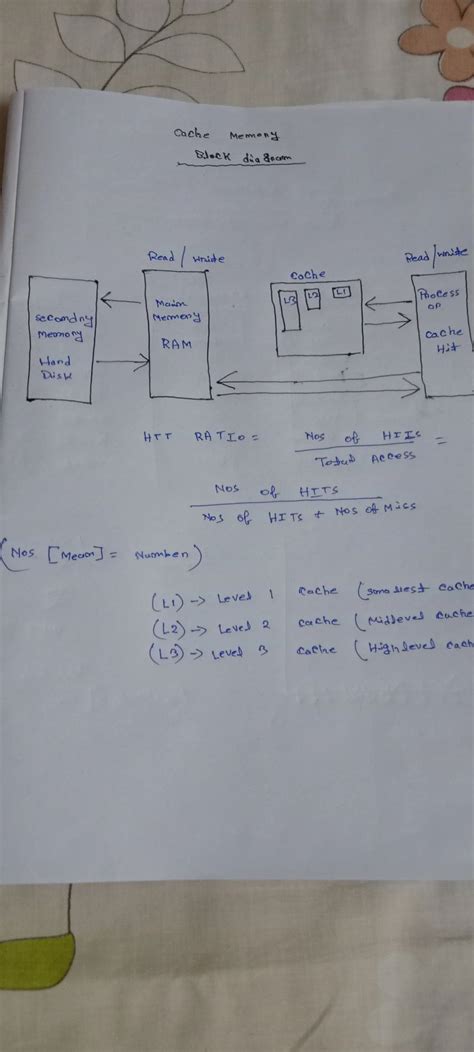 Cache Memory
Block diagram
Read / Write
Read / Write
Cache
L3
L2
L1
Secondry
Memory
Hand
Disk
Main
Memory
RAM
Process
or
Cache
Hit
HIT RATIO = Nos of HITs =
Total Access
Nos of HITS
Nos of HITs + Nos of Miss
(Nos [Mean] = Number)
(L1) → Level 1 cache (Smallest cache
(L2) → Level 2 cache (Midlevel cache
(L3) → Level 3 cache (High level cach